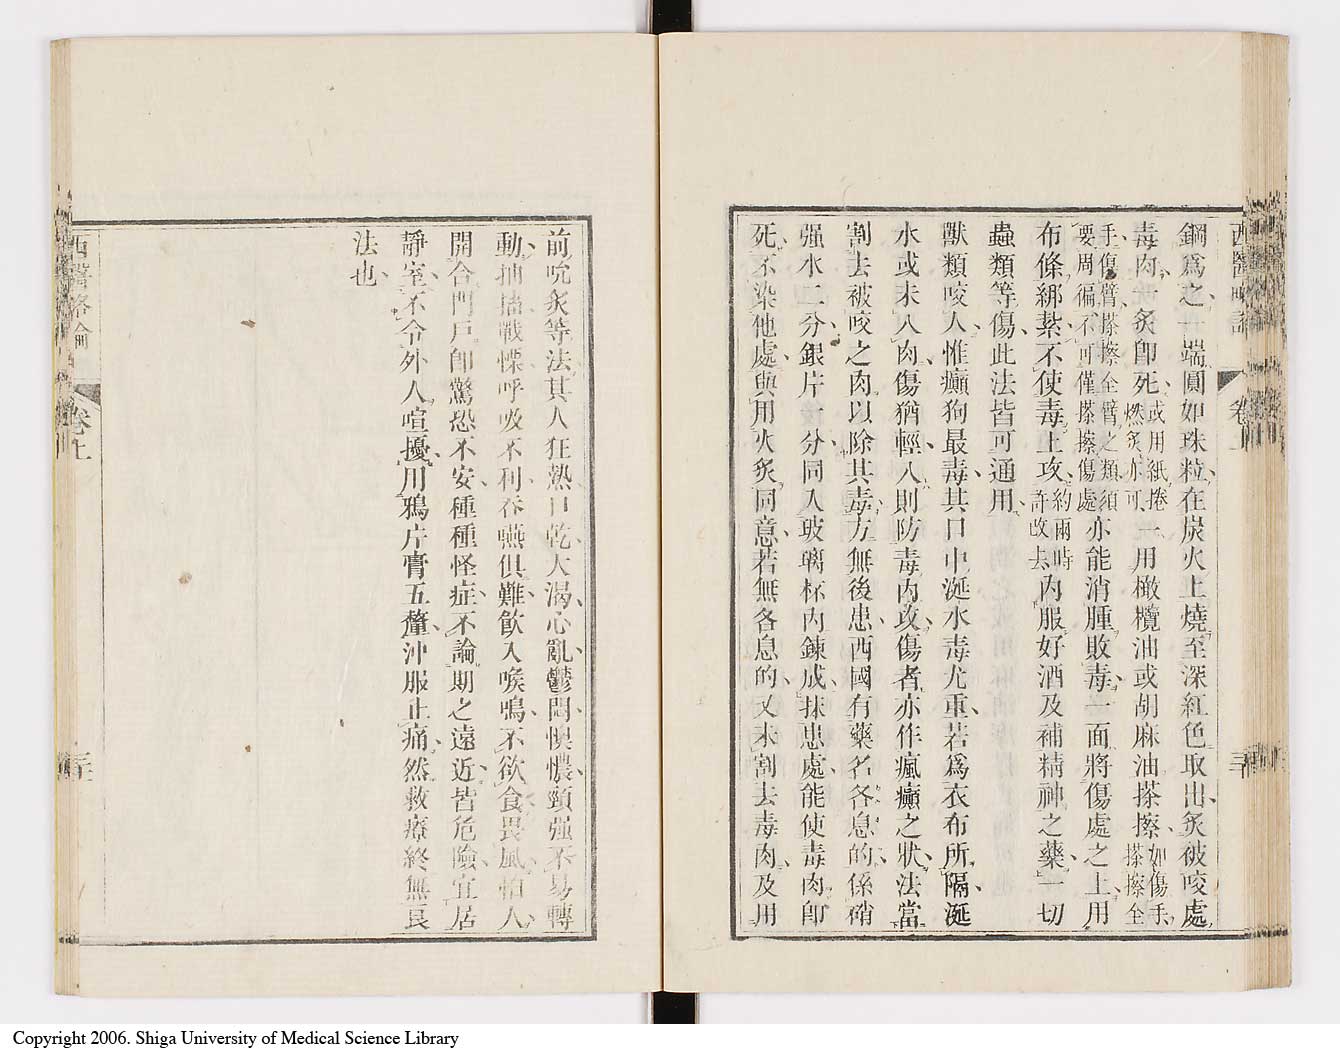 西醫略論
卷上
鋼爲之一端圓如珠粒在炭火上燒至深紅色取出炙被咬處
毒肉炙卽死或用紙捲燃炙亦可一用橄欖油或胡麻油搽擦如傷手搽擦全
手傷臂搽擦全臂之類須要周徧不可僅搽擦傷處亦能消腫敗毒一面將傷處之上用
布條綁紮不使毒上攻約兩時許改去內服好酒及補精神之藥一切
蟲類等傷此法皆可通用
獸類咬人惟癲狗最毒其口中涎水毒尤重若爲衣布所隔涎
水或未入肉傷猶輕入則防毒內攻傷者亦作瘋癲之狀法當
割去被咬之肉以除其毒方無後患西國有藥名各息的係硝
强水二分銀片一分同入玻璃杯內鍊成抹患處能使毒肉卽
死不染他處與用火炙同意若無各息的又未割去毒肉及用
前吮炙等法其人狂熱口乾大渴心亂鬱悶懊憹頸强不易轉
動抽搐戰慄呼吸不利吞嚥俱難飮入喉鳴不欲食畏風怕人
開合門戶卽驚恐不安種種怪症不論期之遠近皆危險宜居
靜室不令外人喧擾用鴉片膏五釐沖服止痛然救療終無良
法也
西醫略論
卷上
Copyright 2006. Shiga University of Medical Science Library